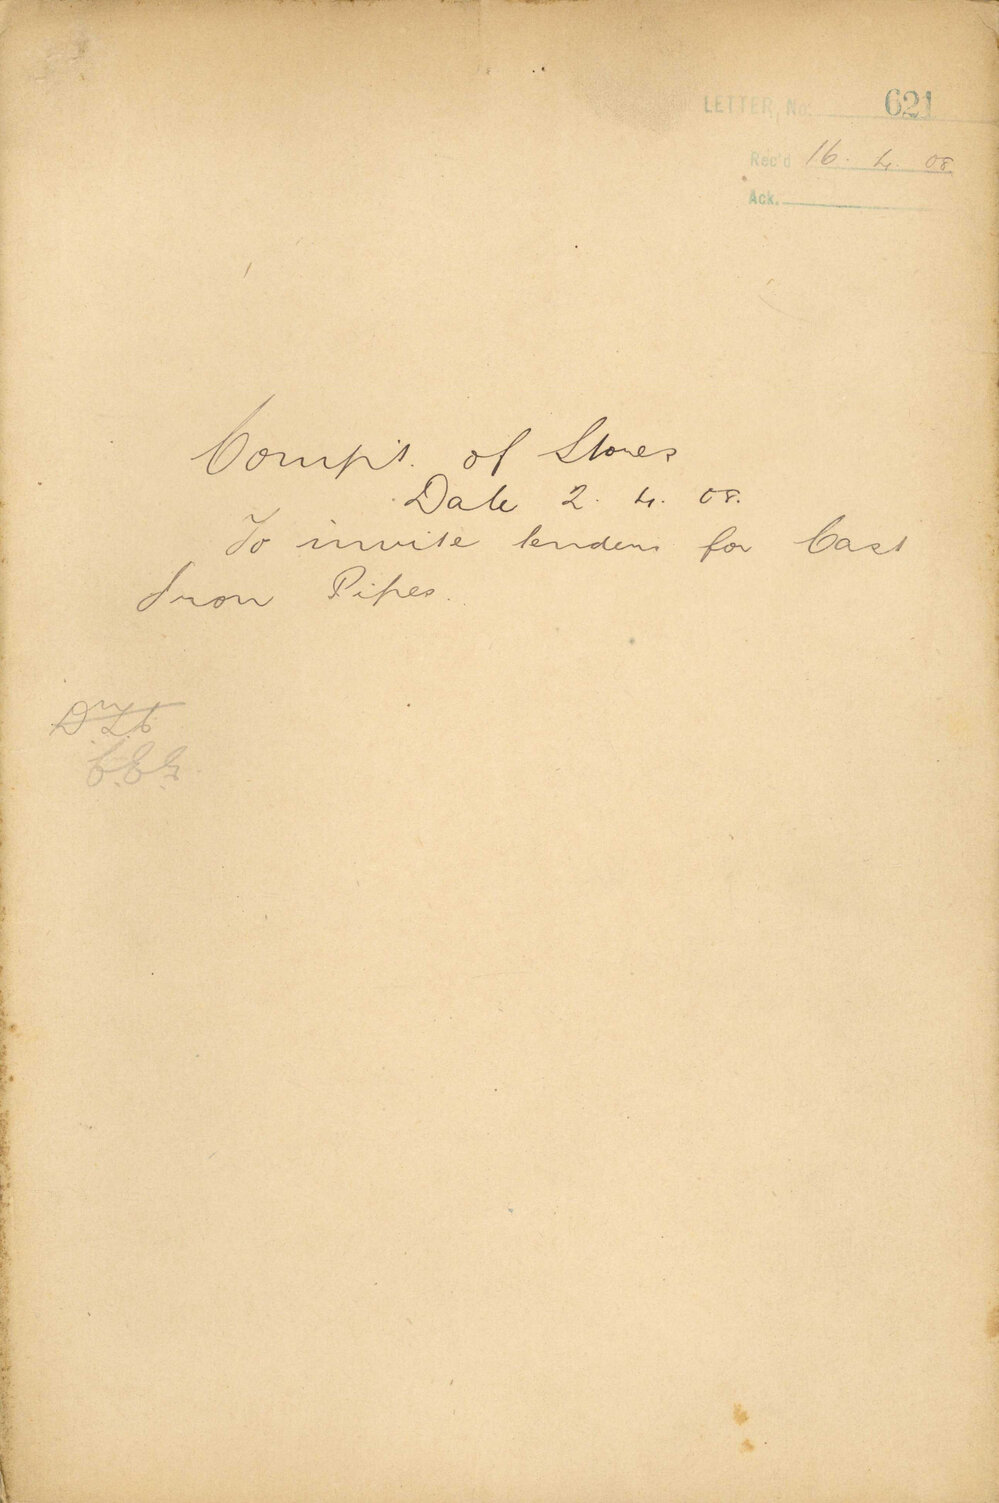 LETTER, No. 621
Rec'd 16. 4. 08
Ack.
Compt. of Stores
Date 2. 4. 08.
To invite tenders for Cast
Iron Pipes.